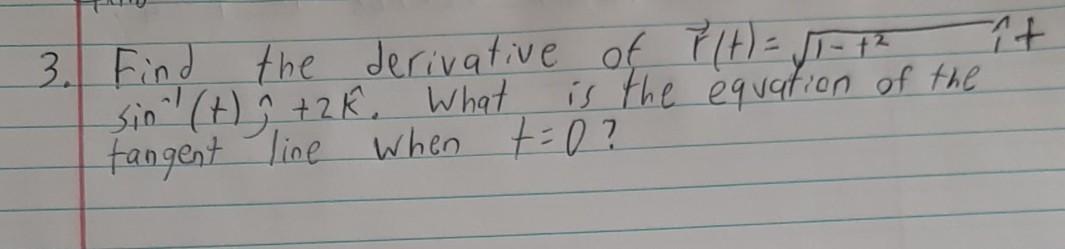 3. Find the derivative of r⃗(t) = √(1-t²) î +
sin⁻¹(t) ĵ + 2k̂. What is the equation of the
tangent line when t=0?